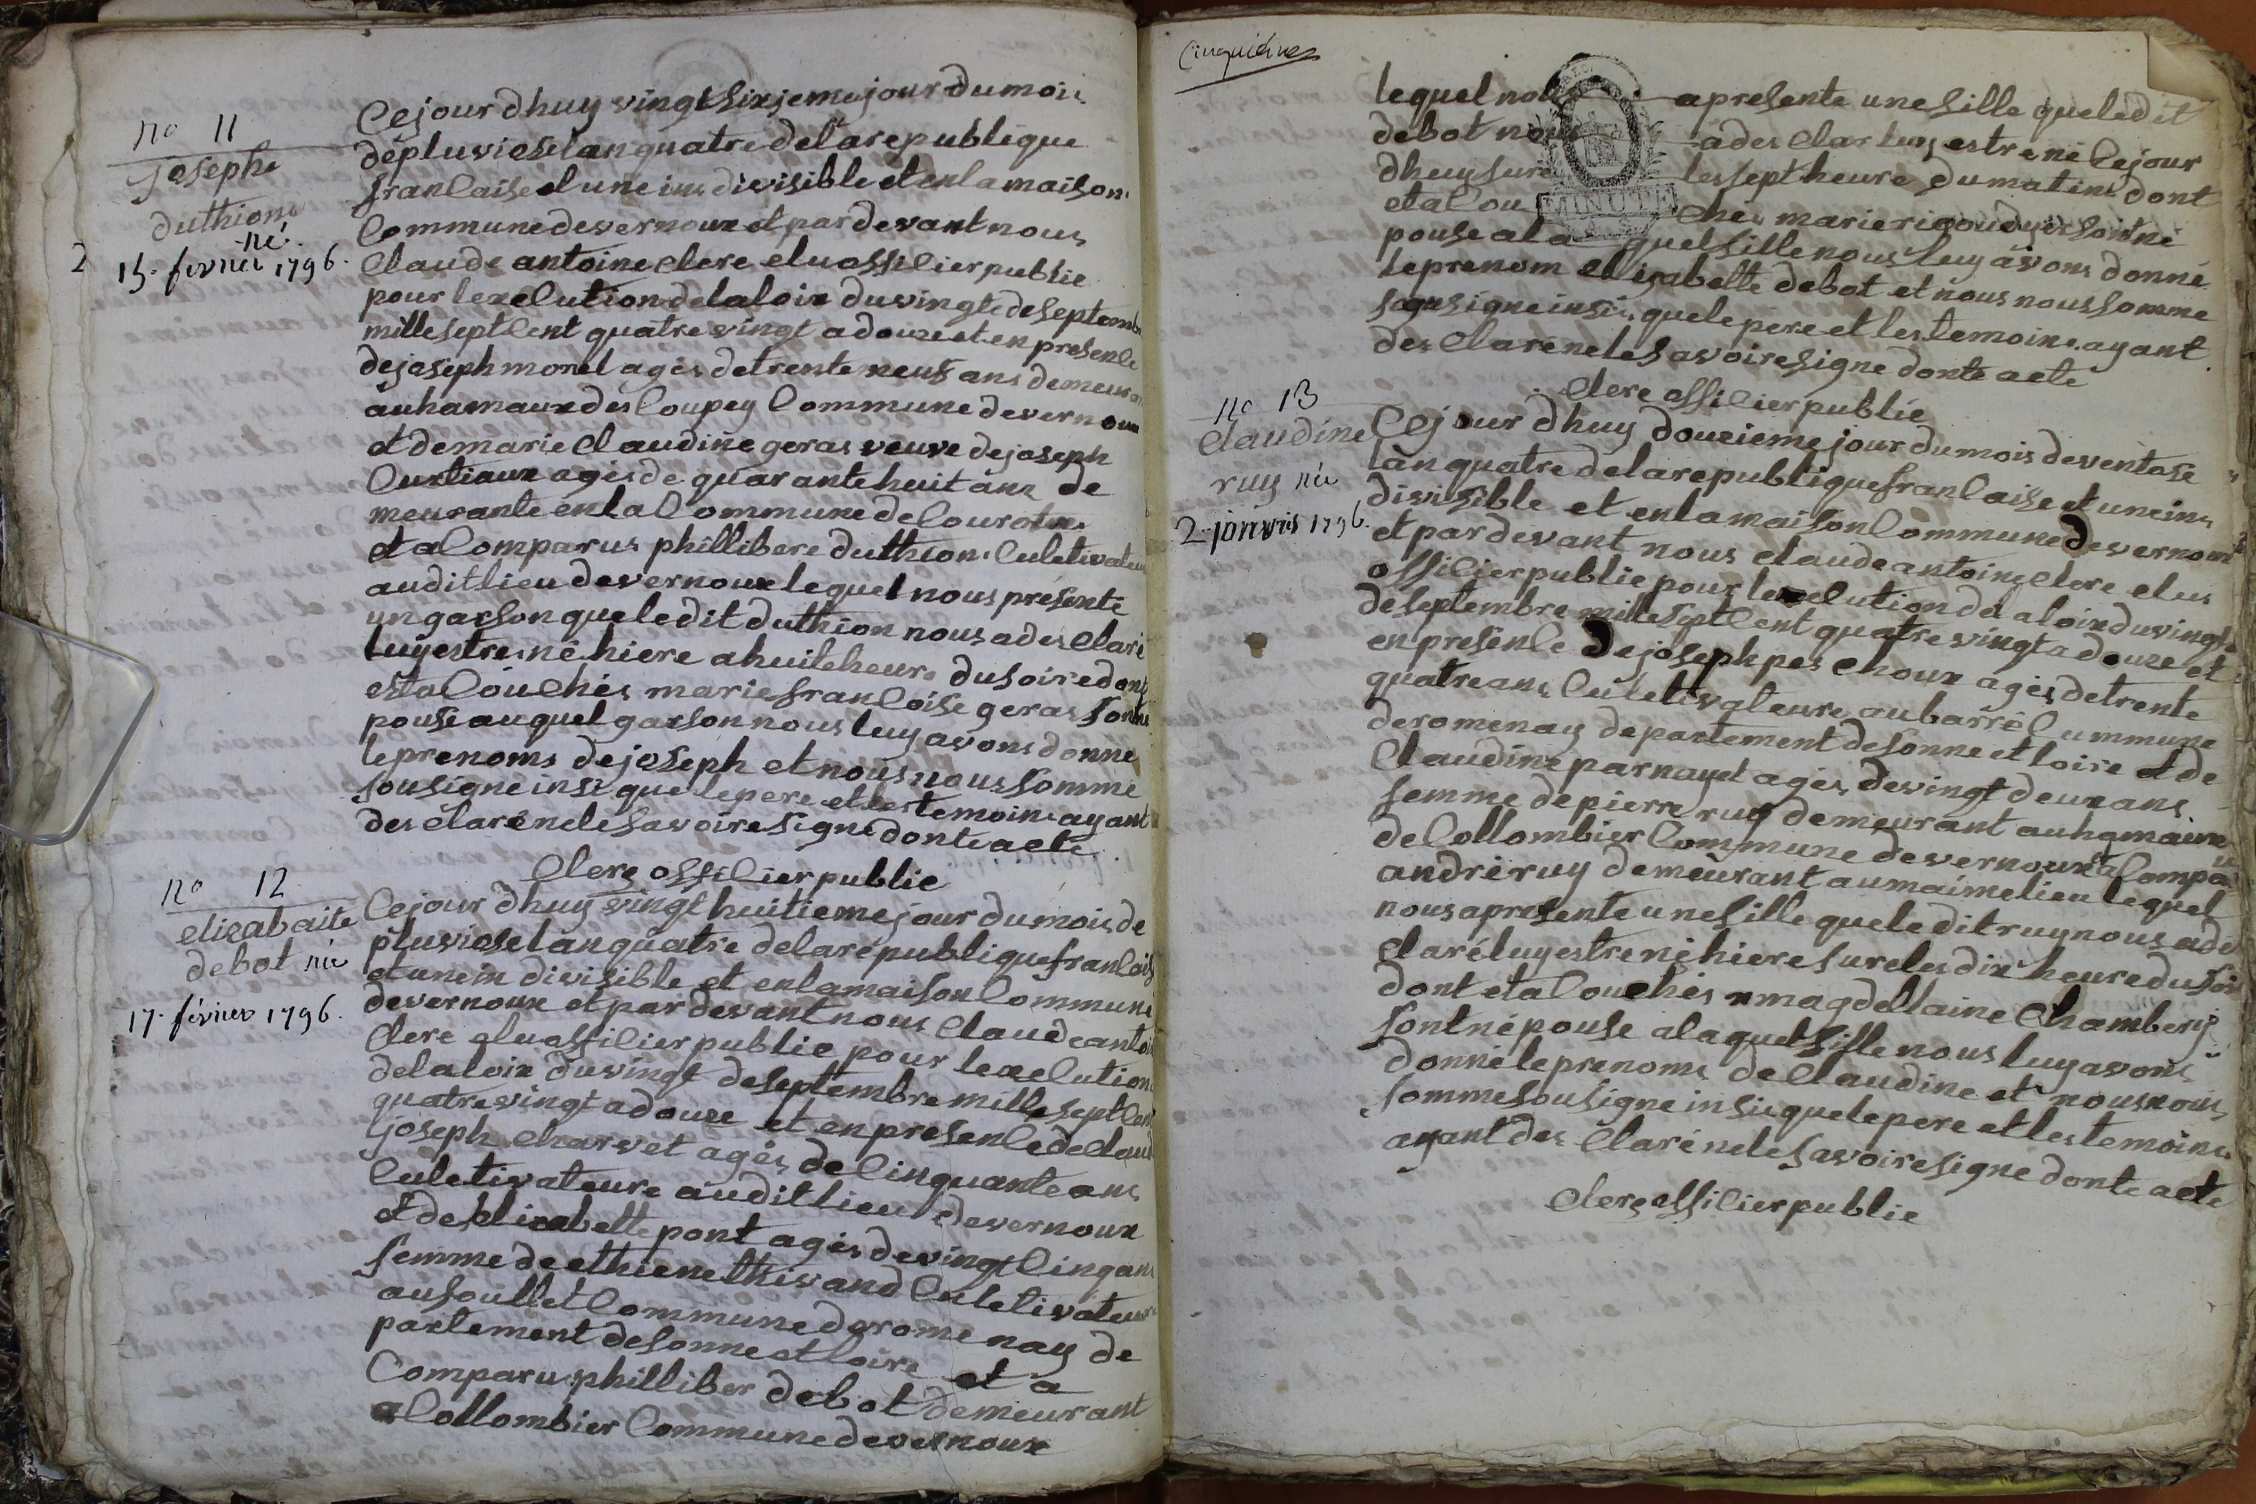 no 11
Joseph
duthion
né
15. fevrier 1796.
2
Cejourdhuy vingt sixjeme jour du mois
de pluviose lan quatre de la republique
francaise et une in divisible et en la maison
Commune de vernoux et par devant nous
Claude antoine clerc elu officier public
pour lexecution de la loix du vingt de septembre
mille sept cent quatre vingt a douze et en presence
de joseph morel agés de trente neuf ans demeurant
au hamaux des Coupey Commune de vernoux
et de marie Claudine geras veuve de joseph
Curtiaux agés de quarante huit ans de
meurante en la Commune de
et a Comparus phillibere duthion Culetivateur
audit lieu de vernoux lequel nous présente
un garson que le dit duthion nous a des Claré
luy estre né hiere a huite heure du soire dont
est a Couchés marie francoise geras sont né
pouse au quel garson nous luy avons donne
le prenoms de joseph et nous nous somme
sousigne insi que le pere et les temoins ayant
des claré ne le savoire signe donte acte
Clerc officier public
no 12
elizabaite
debot née
17. février 1796.
Cejour dhuy vingt huitieme jour du mois de
pluviose lan quatre de la republique francoise
et une in divisible et en la maison Commune
de vernoux et par devant nous Claude antoine
Clerc elu officier public pour lexecution
de la loix du vingt de septembre mille sept cent
quatre vingt a douze et en presence de Claude
joseph Charvet agés de Cinquante ans
Culetivateure audit lieu de vernoux
et de elizabette pont agés de vingt Cinq ans
femme de ethiene thivand Culetivateure
au soullet Commune de rome nay de
partement de sonne et loire et a
Comparus philliber debot demeurant
a Collombier Commune de vernoux
Cinquiéme
lequel nous a presente une fille que le dit
debot nous a des Clar luy estre né Cejour
dhuy sure les sept heure du matin dont
MINUTE
et a Cou chés marie rigoudy de soit né
pouse a la quel fille nous luy avons donné
le prenom elisabette debot et nous nous somme
sousigne insi que le pere et les temoins ayant
des Claré ne le savoire signe donte acte
Clerc officier public
no 13
Claudine
ruy née
2. janvier 1796.
Cejour dhuy douzieme jour du mois de ventose
lan quatre de la republique francaise et une in
divisible et en la maison Commune de vernoux
et par devant nous claude antoine clerc elus
officier public pour lexecution de la loix du vingt
de septembre mille sept cent quatre vingt a douze et
en presence de joseph pes choux agés de trente
quatre ans Culetivateure au barré Cummune
de romenay departement de sonne et loire et de
Claudine parnayet agés de vingt deux ans
femme de pierre ruy demeurant au hamaux
de Collombier Commune de vernoux et a Comparu
andré ruy demeurant au maime lieu lequel
nous a presente une fille que le dit ruy nous a dé
claré luy estre né hiere sure les dix heure du soir
dont et a Couchés magdellaine Chambery
sont né pouse a la quel fille nous luy avons
donné le prenoms de Claudine et nous nous
somme sousigne insi que le pere et les temoins
ayant des Claré ne le savoire signe donte acte
Clerc officier public